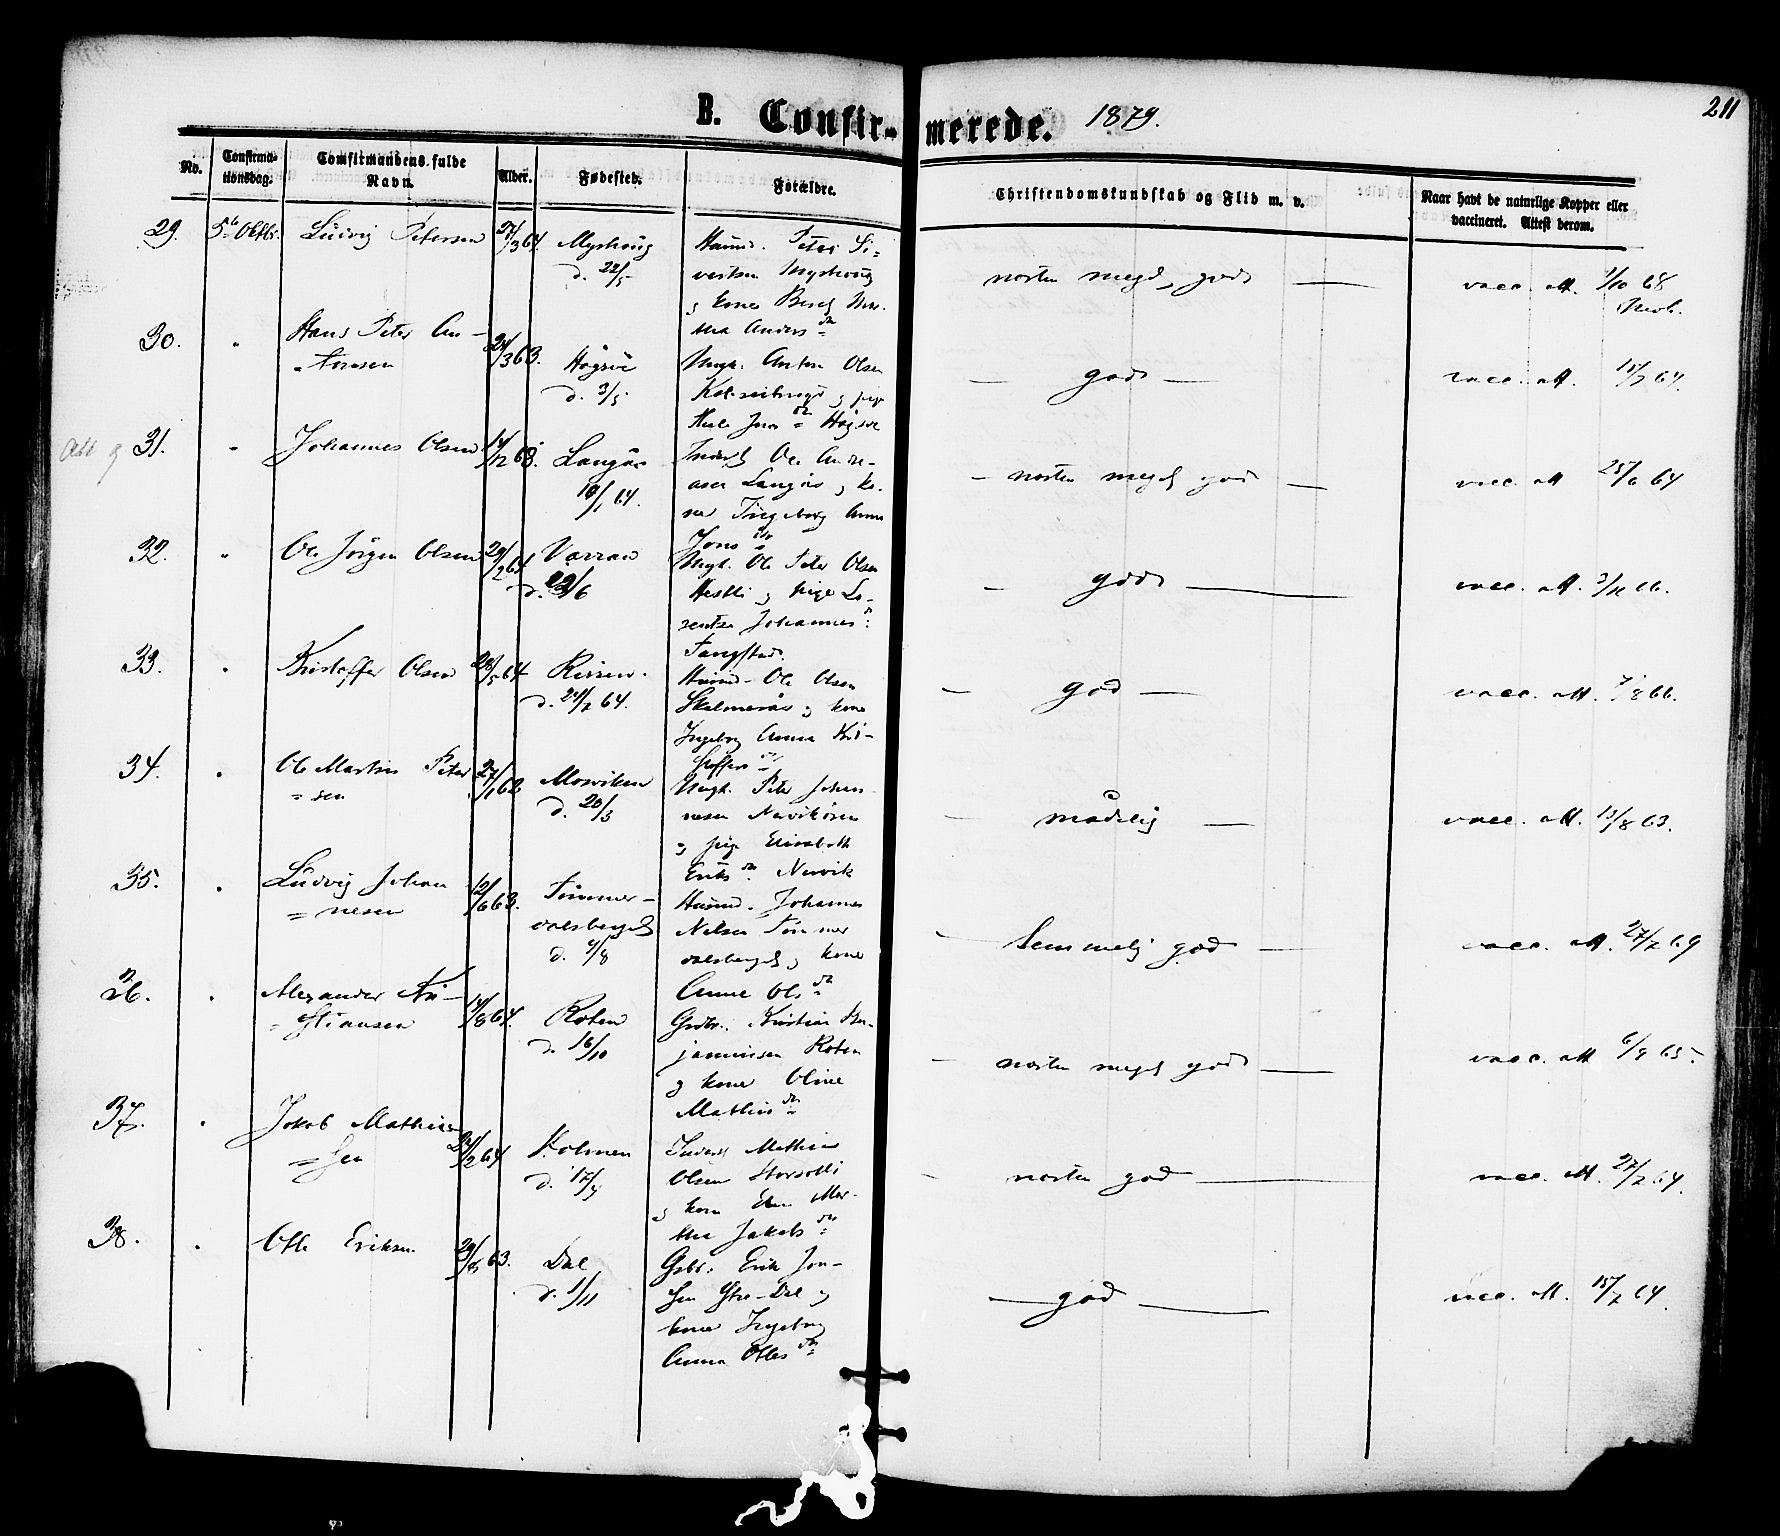 B. Confir- merede. 1879.
211
No.
Confirma-
tionsdag.
Comfirmandens fulde
Navn.
Alder.
Fødested.
Forældre.
Christendomskundskab og Flid m. v.
Naar havt de naturlige Kopper eller
vaccineret. Attest derom.
29. 5te Oktbr. Ludvig Petersen 64. Myrhaug
d. 22/5
Huusm. Peter Si=
vertsen Myrhaug
og kone Beret Mar-
tha Anders dr
næsten meget god
vacc. att. 1/10 68
30. " Hans Peter An-
tonsen
24/3 63. Högsve
d. 3/5
Ungk. Anton Olsen
og pige
Jens dr Högsve
god
vacc. att. 15/7 64.
31. " Johannes Olsen 14/12 63. Langås
10/1 64.
Inderst Ole Andre-
asen Langås og ko-
ne Ingeborg Anna
Jons dr
næsten meget god
vacc. att 25/6 64
32. " Ole Jörgen Olsen 29/2 64 Varran
d. /6
Ungk. Ole Peter Olsen
Hestli og pige Lo-
rentse Johannes dr
Fangstad.
god
vacc. att. 66.
33. " Kristoffer Olsen 28/5 64 Rissen.
d. 24/7 64.
Huusm. Ole Olsen
og kone
Ingeborg Anna Kri-
stoffers dr
god
vacc. att. 7/8 66.
34. " Ole Martin Peter
= sen
27/1 62 Mosviken
d. 20/3
Ungk. Peter Johan
nesen
og pige Elisabeth
Eriks dr. Nervik
mådelig
vacc. att. 13/8 63.
35. " Ludvig Johan
= nesen
12/6 63. Tömmer-
dalsberget
d. 9/8
Huusm. Johannes
Nilsen Tömmer
dalsberget og kone
Anne Ols dr
temmelig god
vacc. att. 27/7 69
36. " Alexander Kri-
= stiansen
14/8 64. Roten
d. 16/10
Gdbr. Kristian Ben-
jaminsen Roten
og kone Oline
Mathis dr
næsten meget god
vacc. att 6/9 65.
37. " Jakob Mathias
= sen
24/2 64 Holmen
d. 17/4
Inderst Mathias
Olsen
og kone Ellen Mar-
tha Jakobs dr
næsten god
vacc. att. 27/7 64.
38. " Otte Eriksen 29/8 63. Dal
d. 1/11
Gdbr. Erik Jon-
sen Ytre-Dal og
kone Ingeborg
Anna Ottes dr
god
vacc. att. 15/7 64.